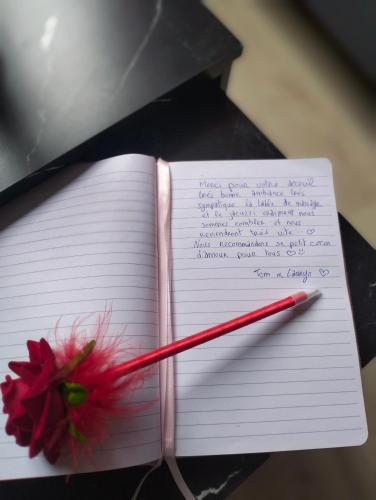 Merci pour votre accueil
très bonne ambiance très
sympatique la table de massage
et le jacuzzi vraiment nous
sommes comblés et nous
reviendront très vite ... ♡
Nous recommandons se petit cocon
d'amour pour tous ♡☺
Tom ♡